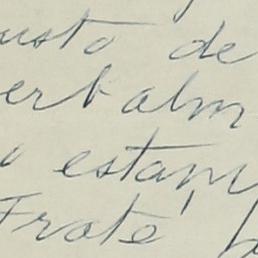 usto de
erbalm
o estam
Frate